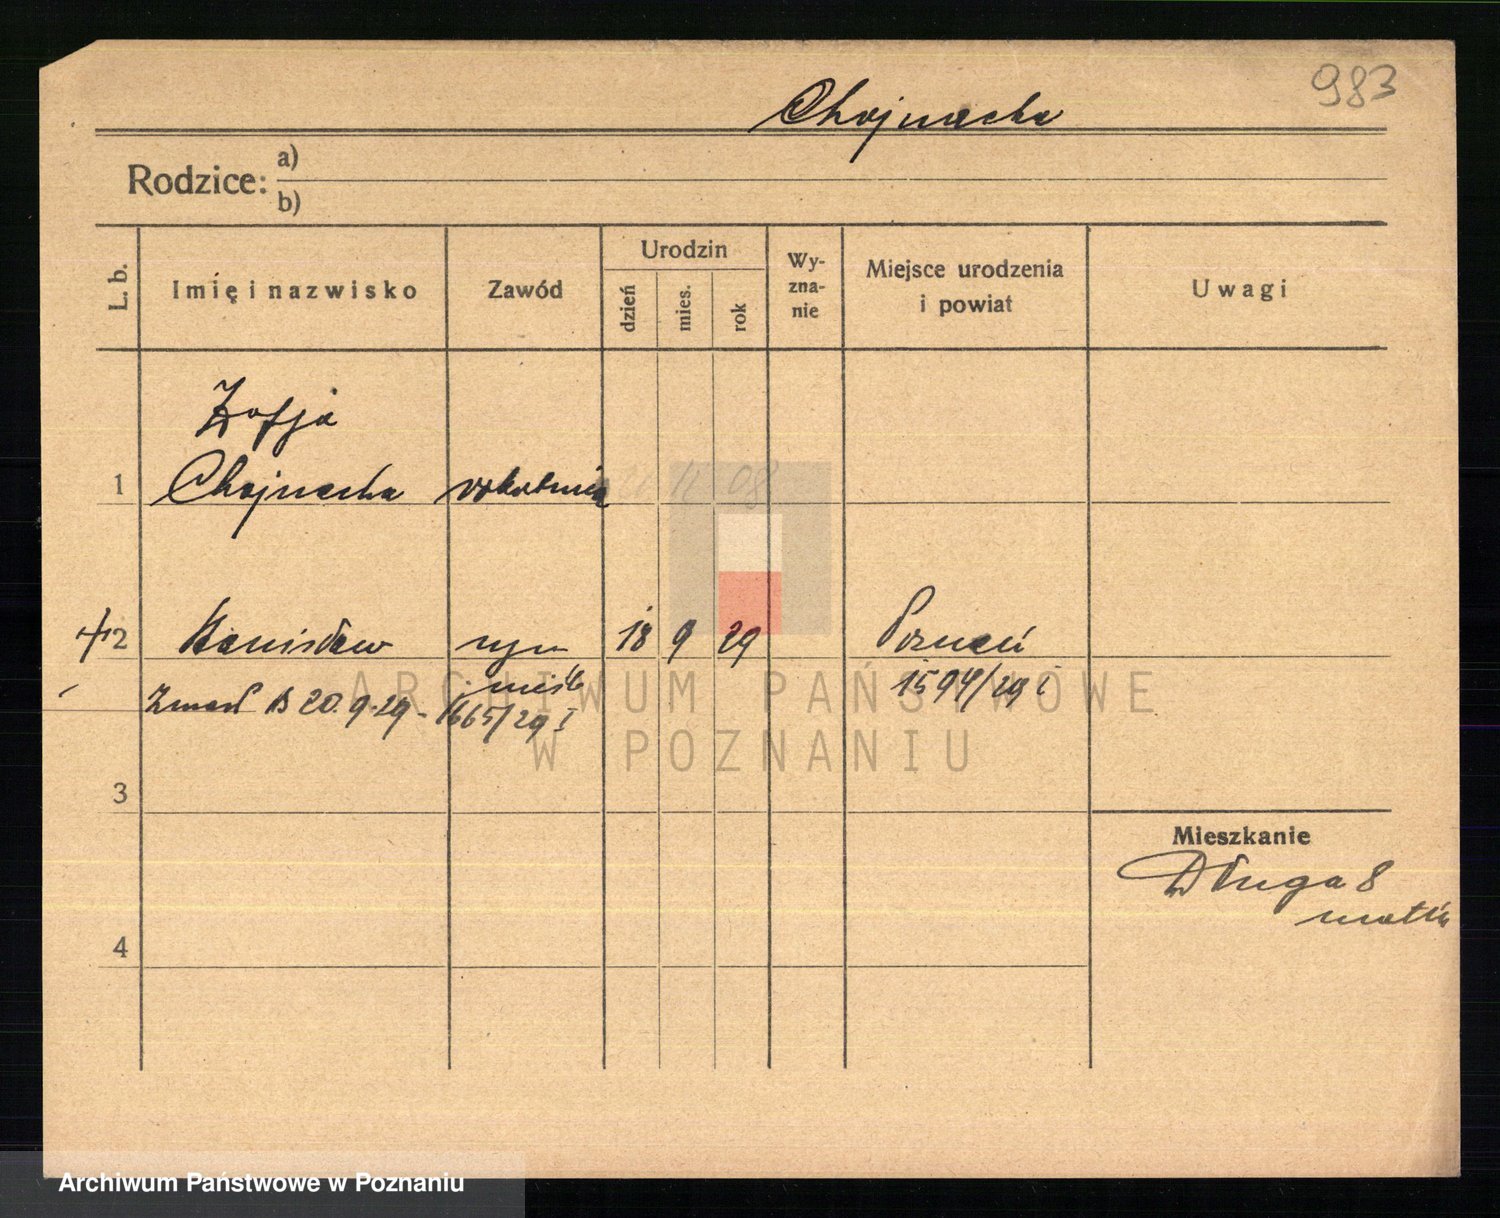 983
Chojnacka
Rodzice: a)
b)
L. b.
Imię i nazwisko
Zawód
Urodzin
dzień
mies.
rok
Wy-
zna-
nie
Miejsce urodzenia
i powiat
Uwagi
Zofja
1 Chojnacka robotnica 11 08
2 Stanisław syn 18 9 29 Poznań
1594/29 I
nieśl
Zmarł 20.9.29 - 1665/29 I
ARCHIWUM PAŃSTWOWE
W POZNANIU
3
Mieszkanie
Długa 8
4
Archiwum Państwowe w Poznaniu